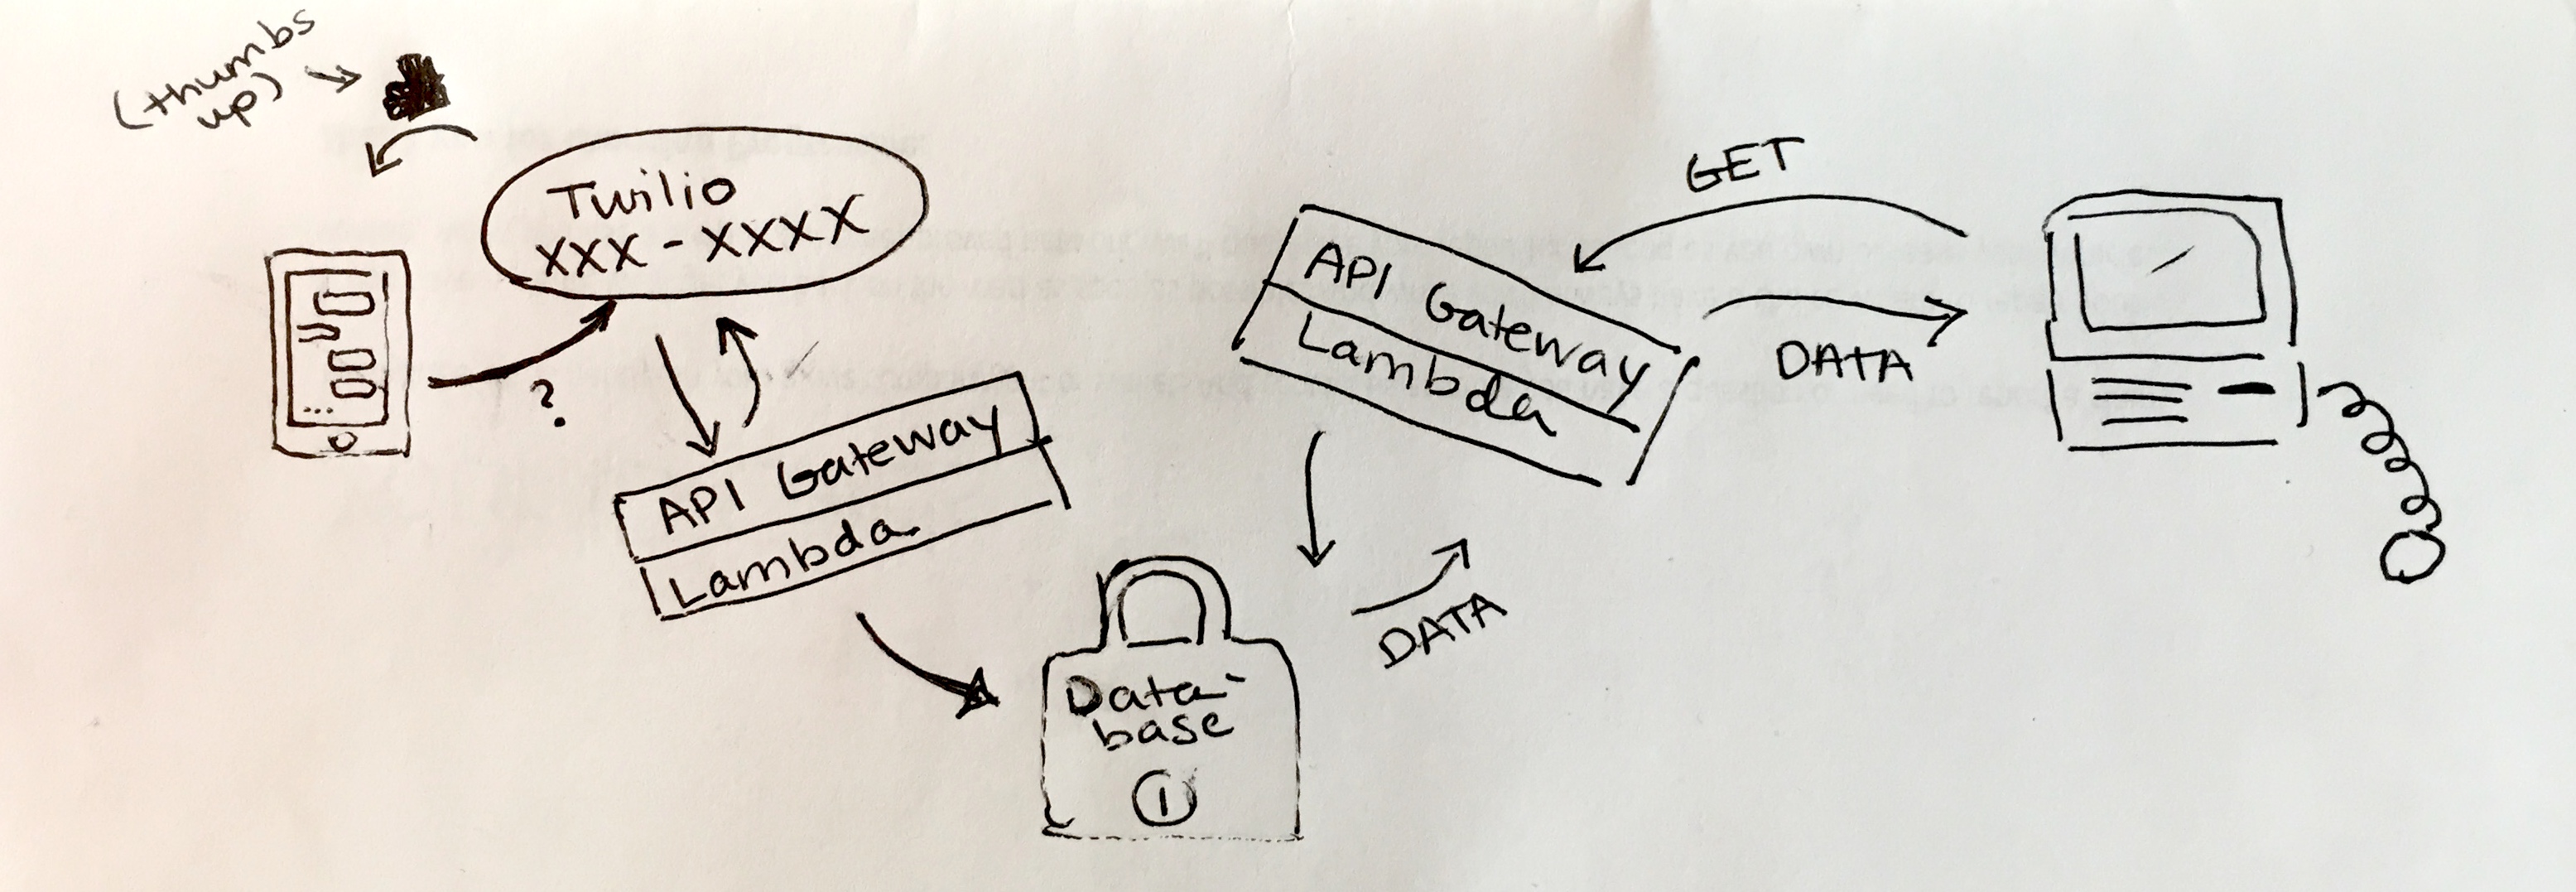 (thumbs
up)
Twilio
XXX-XXXX
?
API Gateway
Lambda
Data-
base
1
GET
API Gateway
Lambda
DATA
DATA